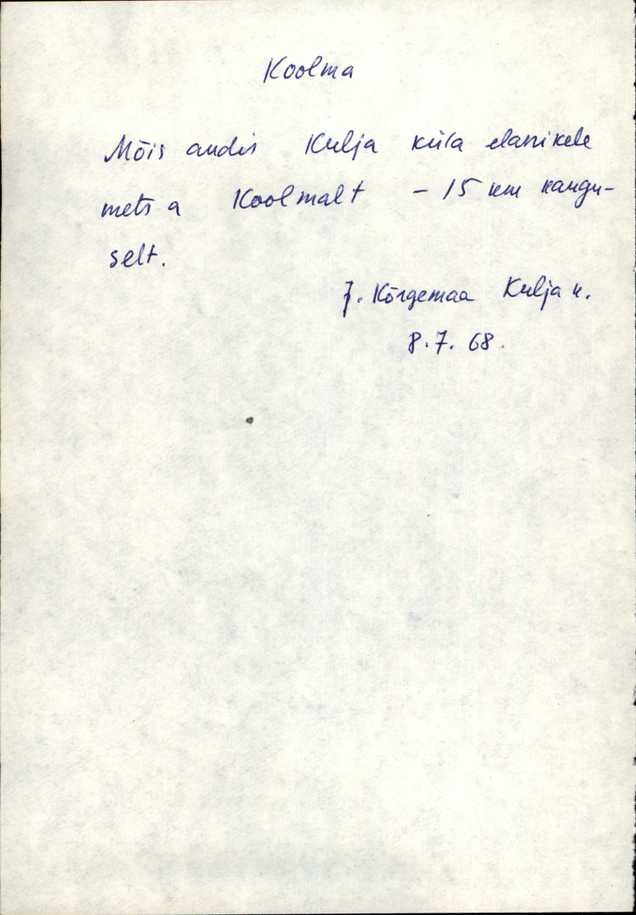 Koolma
Mõis andis Kulja küla elanikele
metsa Koolmalt - 15 km kaugu-
selt.
J. Kõrgemaa Kulja k.
8.7.68.